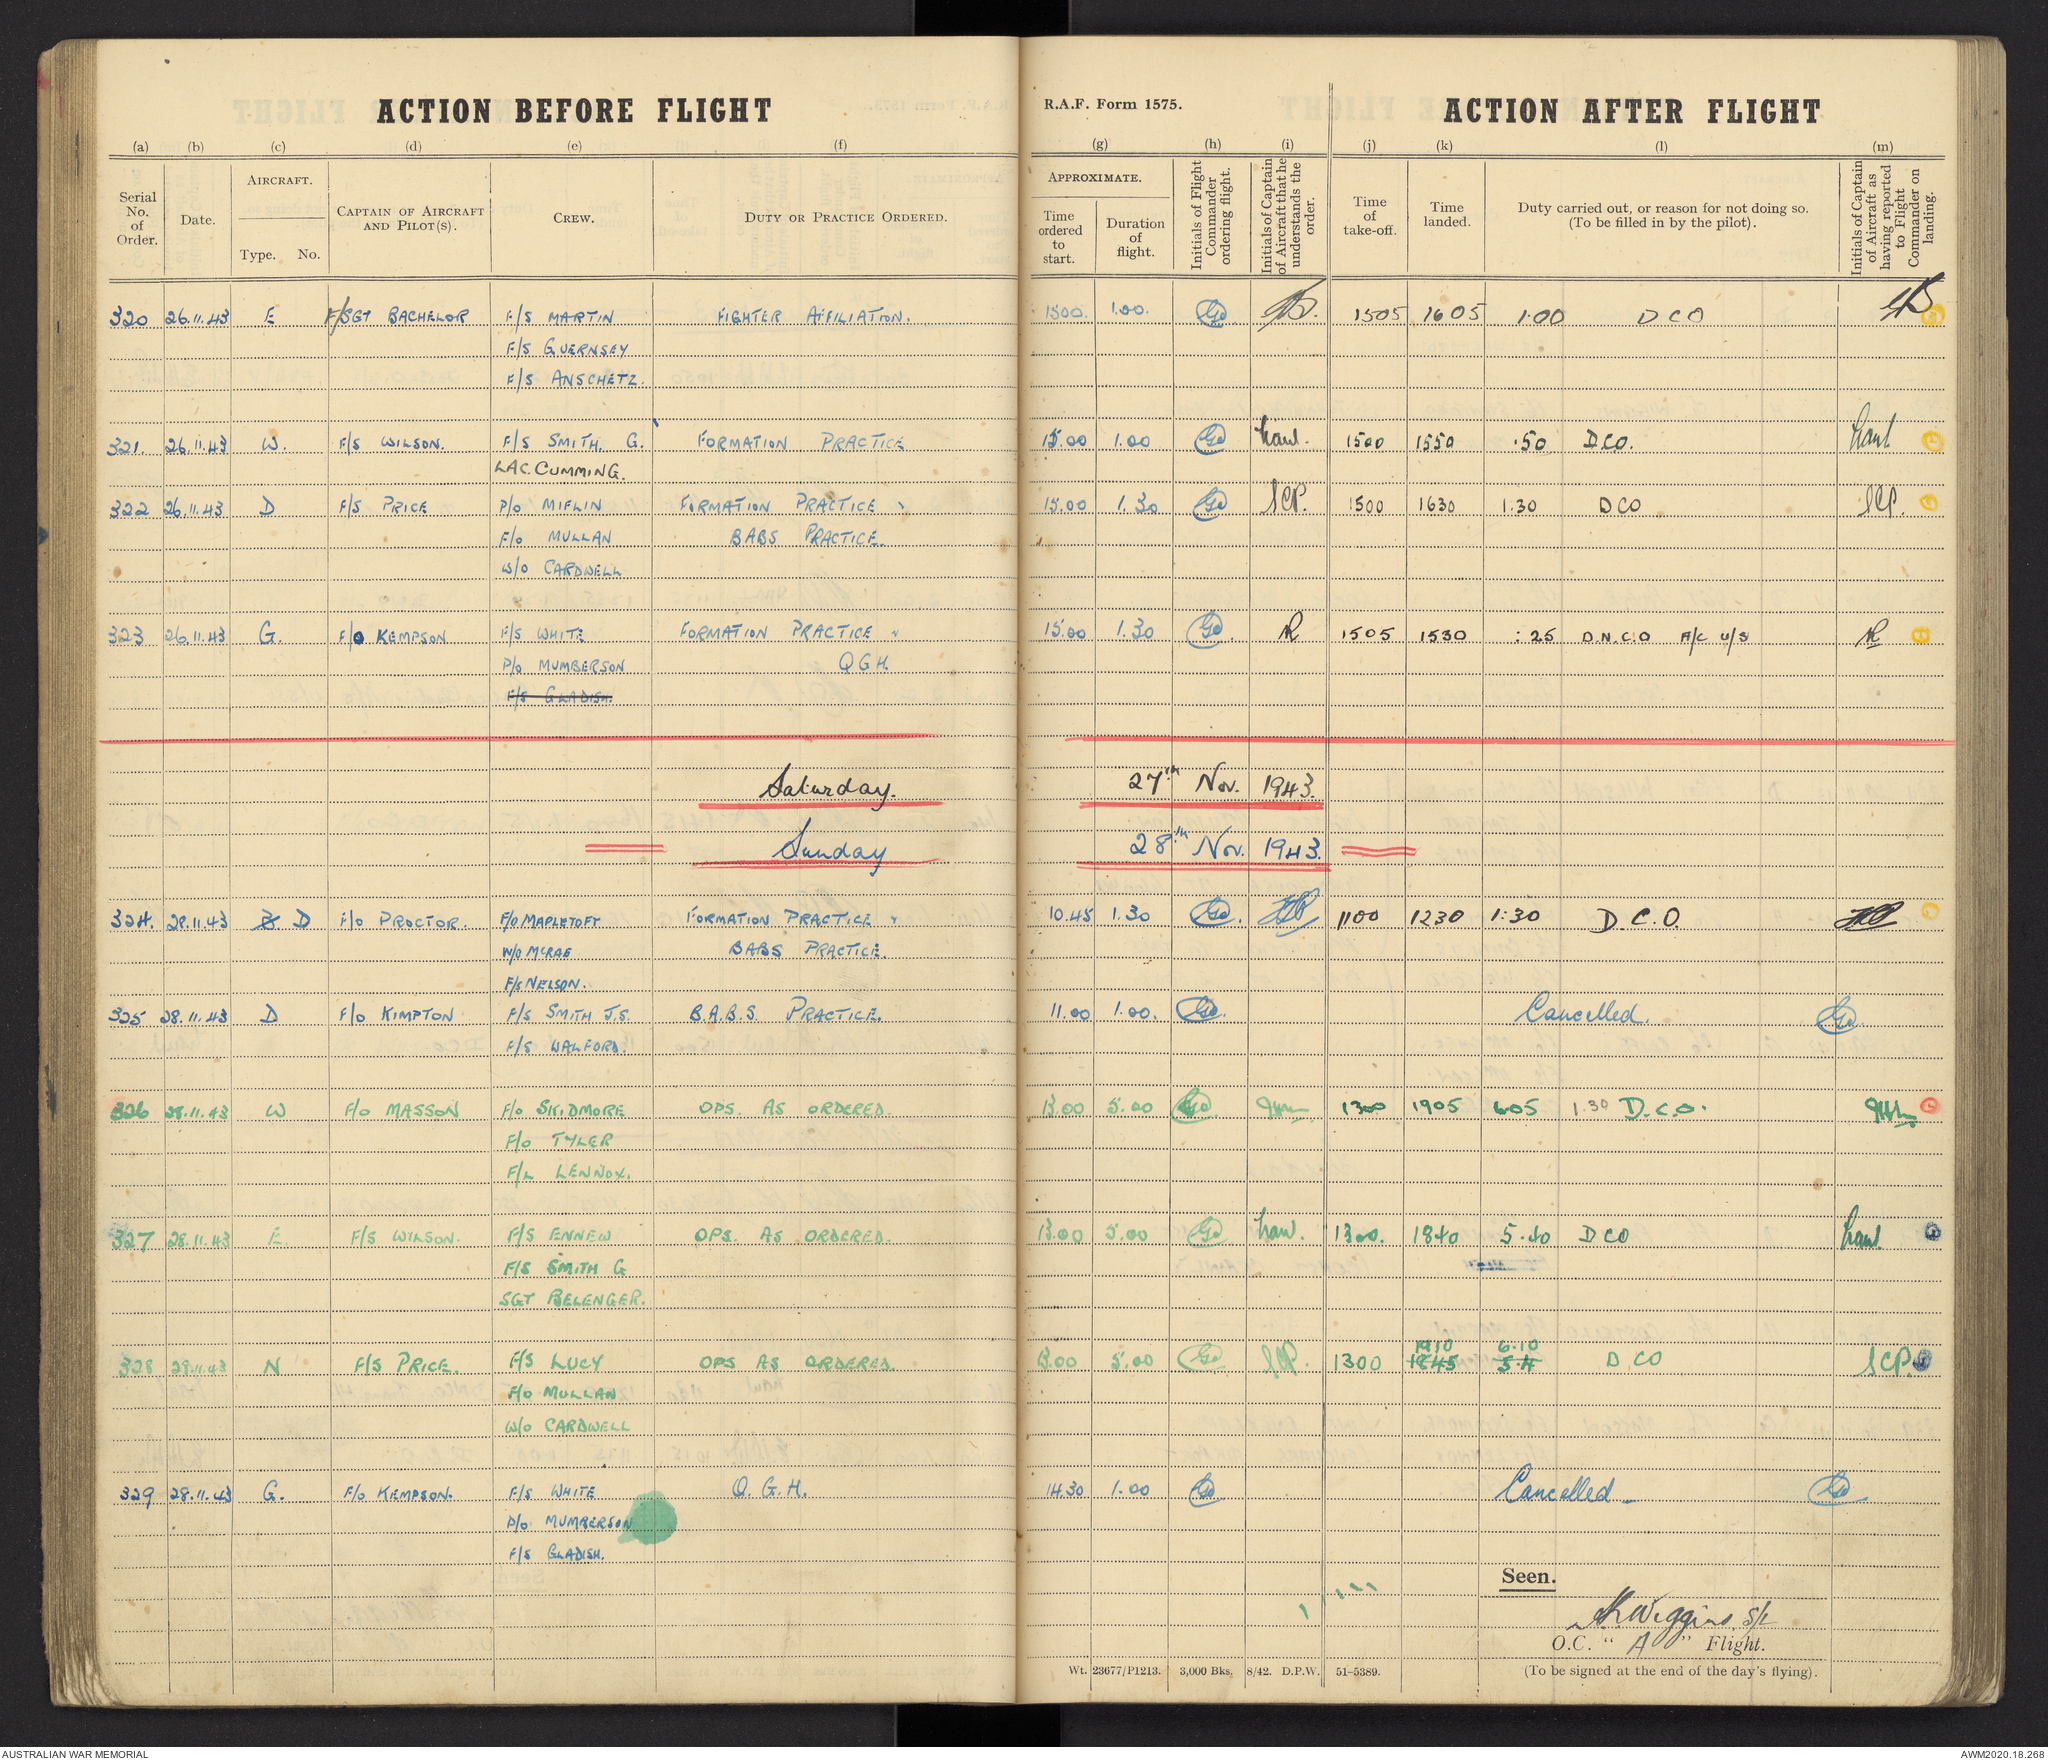 ACTION BEFORE FLIGHT
R.A.F. Form 1575.
ACTION AFTER FLIGHT
(a) (b) (c) (d) (e) (f) (g) (h) (i) (j) (k) (l) (m)
Serial No. of Order.
Date.
AIRCRAFT.
Type. No.
CAPTAIN OF AIRCRAFT AND PILOT(S).
CREW.
DUTY OR PRACTICE ORDERED.
APPROXIMATE.
Time ordered to start.
Duration of flight.
Initials of Flight Commander ordering flight.
Initials of Captain of Aircraft that he understands the order.
Time of take-off.
Time landed.
Duty carried out, or reason for not doing so.
(To be filled in by the pilot).
Initials of Captain of Aircraft as having reported to Flight Commander on landing.
320 26.11.43 E F/SGT BACHELOR F/S MARTIN FIGHTER AFFILIATION. 1500. 1.00. 1505 1605 1.00 DCO
F/S GUERNSEY
F/S ANSCHETZ.
321. 26.11.43 W. F/S WILSON. F/S SMITH, G. FORMATION PRACTICE 15.00 1.00 1500 1550 .50 DCO.
LAC. CUMMING.
322 26.11.43 D F/S PRICE P/O MIFLIN FORMATION PRACTICE 15.00 1.30 SCP. 1500 1630 1.30 DCO SCP.
F/O MULLAN BABS PRACTICE.
W/O CARDWELL
323 26.11.43 G. F/O KEMPSON F/S WHITE FORMATION PRACTICE " 15.00 1.30 1505 1530 :25 D.N.C.O A/C U/S
P/O MUMBERSON QGH.
F/S GLADISH.
Saturday. 27th Nov. 1943.
Sunday 28th Nov. 1943.
324. 28.11.43 D F/O PROCTOR. F/O MAPLETOFT FORMATION PRACTICE " 10.45 1.30 1100 1230 1:30 D.C.O.
W/O MCRAE BABS PRACTICE.
F/S NELSON.
325 28.11.43 D F/O KIMPTON F/S SMITH J.S. B.A.B.S. PRACTICE. 11.00 1.00. Cancelled.
F/S WALFORD.
326 28.11.43 W F/O MASSON F/O SKIDMORE OPS. AS ORDERED. 13.00 5.00 1300 1905 6.05 1.30 D.C.O.
F/O TYLER
F/L LENNOX.
327 28.11.43 E. F/S WILSON. F/S ENNEW OPS. AS ORDERED. 13.00 5.00 1300. 1840 5.40 DCO
F/S SMITH G
SGT BELENGER.
1910 6.10
328 28.11.43 N F/S PRICE. F/S LUCY OPS AS ORDERED. 13.00 5.00 SCP. 1300 1845 5.4 DCO SCP.
F/O MULLAN
W/O CARDWELL
329 28.11.43 G. F/O KEMPSON. F/S WHITE Q.G.H. 14.30 1.00 Cancelled
P/O MUMBERSON
F/S GLADISH.
Seen.
Wiggins, S/L
O.C. " A " Flight.
Wt. 23677/P1213. 3,000 Bks. 8/42. D.P.W. 51-5389.
(To be signed at the end of the day's flying).
AUSTRALIAN WAR MEMORIAL
AWM2020.18.268